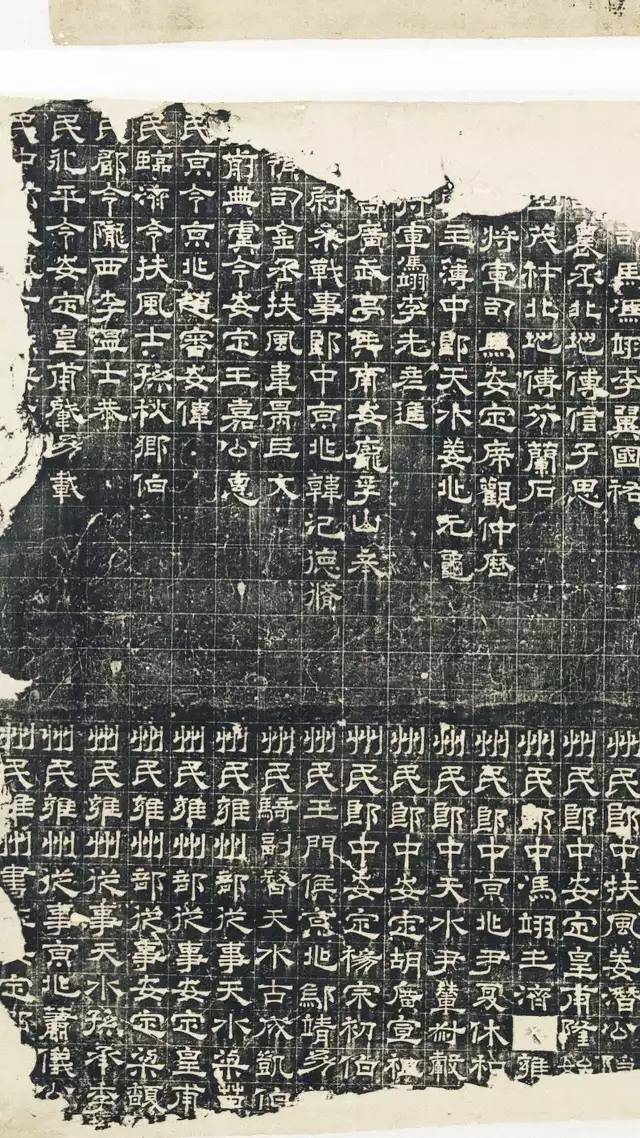 司馬馮翊李翼國祐
農丞北地傅信子思
茂材北地傅芬蘭石
將軍司馬安定席觀仲歷
主簿中郎天水姜兆元龜
將軍馮翊李先彥進
廣武亭侯南安龐孚山泰
尉參戰事郎中京兆韓氾德脩
司金丞扶風韋昺巨文
前典虞令安定王嘉公惠
民京令京兆趙審安偉
民臨濟令扶風士孫秋鄉伯
民郿令隴西李溫士恭
民永平令安定皇甫肇幼載
民中
州民郎中扶風姜潛公
州民郎中安定皇甫隆始
州民郎中馮翊王濟雍
州民郎中京兆尹夏休和
州民郎中天水尹輦叔轂
州民郎中安定胡廣宣祖
州民郎中安定楊宗初伯
州民玉門侯京兆鄔靖幼
州民騎副督天水古成凱伯
州民雍州部從事天水梁苗
州民雍州部從事安定皇甫
州民雍州部從事安定梁馥
州民雍州從事天水孫承季
州民雍州從事京兆蕭儀公
州民雍州書